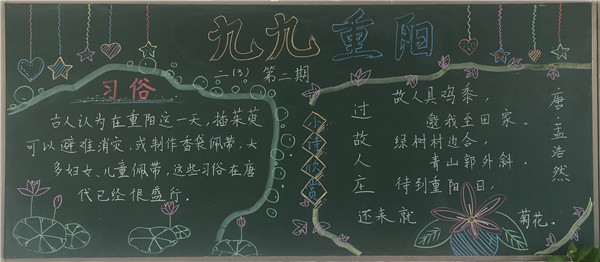 九九重阳
二(3) 第二期
习俗
古人认为在重阳这一天，插茱萸
可以避难消灾，或制作香袋佩带．大
多妇女、儿童佩带，这些习俗在唐
代已经很盛行．
小诗欣赏
过故人庄
唐·孟浩然
故人具鸡黍，
邀我至田家．
绿树村边合，
青山郭外斜．
待到重阳日，
还来就菊花．